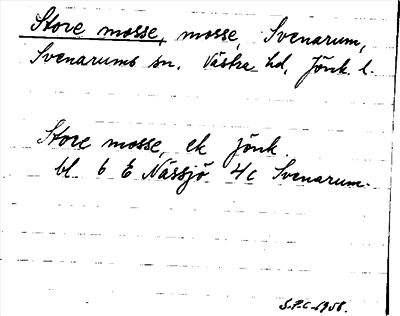 Store mosse, mosse, Svenarum,
Svenarums sn. Västra hd, Jönk. l.
Store mosse, ek Jönk.
bl. 6 E Nässjö 4c Svenarum.
S.P.C. 1958.